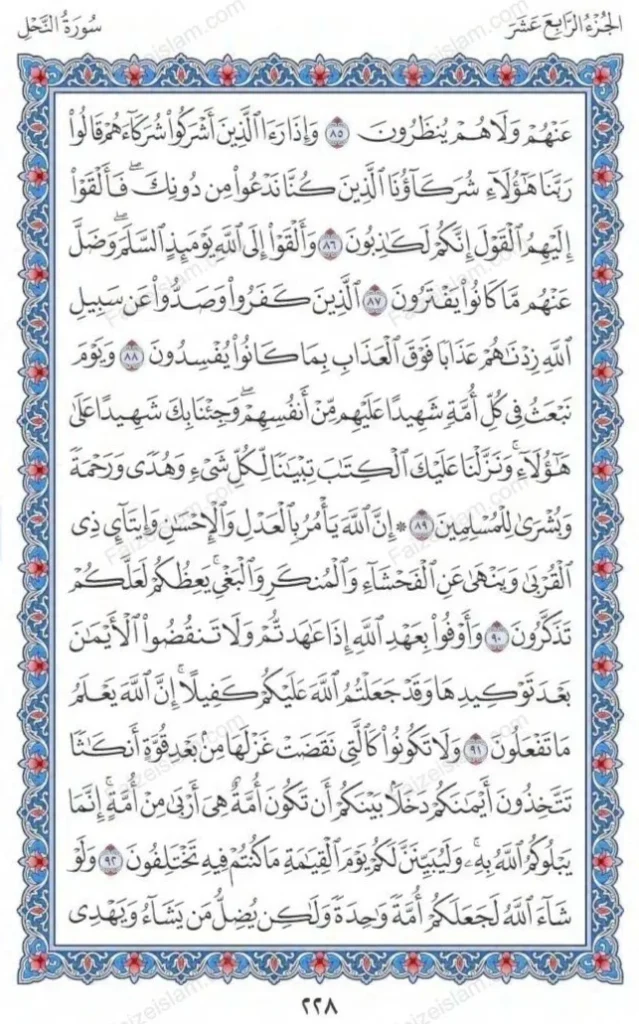 الجُزْءُ الرَّابِعَ عَشَرَ
سُورَةُ النَّحْلِ
عَنْهُمْ وَلَا هُمْ يُنظَرُونَ ٨٥ وَإِذَا رَءَا ٱلَّذِينَ أَشْرَكُوا۟ شُرَكَآءَهُمْ قَالُوا۟
رَبَّنَا هَٰٓؤُلَآءِ شُرَكَآؤُنَا ٱلَّذِينَ كُنَّا نَدْعُوا۟ مِن دُونِكَ ۖ فَأَلْقَوْا۟
إِلَيْهِمُ ٱلْقَوْلَ إِنَّكُمْ لَكَٰذِبُونَ ٨٦ وَأَلْقَوْا۟ إِلَى ٱللَّهِ يَوْمَئِذٍ ٱلسَّلَمَ ۖ وَضَلَّ
عَنْهُم مَّا كَانُوا۟ يَفْتَرُونَ ٨٧ ٱلَّذِينَ كَفَرُوا۟ وَصَدُّوا۟ عَن سَبِيلِ
ٱللَّهِ زِدْنَٰهُمْ عَذَابًا فَوْقَ ٱلْعَذَابِ بِمَا كَانُوا۟ يُفْسِدُونَ ٨٨ وَيَوْمَ
نَبْعَثُ فِى كُلِّ أُمَّةٍ شَهِيدًا عَلَيْهِم مِّنْ أَنفُسِهِمْ ۖ وَجِئْنَا بِكَ شَهِيدًا عَلَىٰ
هَٰٓؤُلَآءِ ۚ وَنَزَّلْنَا عَلَيْكَ ٱلْكِتَٰبَ تِبْيَٰنًا لِّكُلِّ شَىْءٍ وَهُدًى وَرَحْمَةً
وَبُشْرَىٰ لِلْمُسْلِمِينَ ٨٩ ۞ إِنَّ ٱللَّهَ يَأْمُرُ بِٱلْعَدْلِ وَٱلْإِحْسَٰنِ وَإِيتَآئِ ذِى
ٱلْقُرْبَىٰ وَيَنْهَىٰ عَنِ ٱلْفَحْشَآءِ وَٱلْمُنكَرِ وَٱلْبَغْىِ ۚ يَعِظُكُمْ لَعَلَّكُمْ
تَذَكَّرُونَ ٩٠ وَأَوْفُوا۟ بِعَهْدِ ٱللَّهِ إِذَا عَٰهَدتُّمْ وَلَا تَنقُضُوا۟ ٱلْأَيْمَٰنَ
بَعْدَ تَوْكِيدِهَا وَقَدْ جَعَلْتُمُ ٱللَّهَ عَلَيْكُمْ كَفِيلًا ۚ إِنَّ ٱللَّهَ يَعْلَمُ
مَا تَفْعَلُونَ ٩١ وَلَا تَكُونُوا۟ كَٱلَّتِى نَقَضَتْ غَزْلَهَا مِنۢ بَعْدِ قُوَّةٍ أَنكَٰثًا
تَتَّخِذُونَ أَيْمَٰنَكُمْ دَخَلًۢا بَيْنَكُمْ أَن تَكُونَ أُمَّةٌ هِىَ أَرْبَىٰ مِنْ أُمَّةٍ ۚ إِنَّمَا
يَبْلُوكُمُ ٱللَّهُ بِهِۦ ۚ وَلَيُبَيِّنَنَّ لَكُمْ يَوْمَ ٱلْقِيَٰمَةِ مَا كُنتُمْ فِيهِ تَخْتَلِفُونَ ٩٢ وَلَوْ
شَآءَ ٱللَّهُ لَجَعَلَكُمْ أُمَّةً وَٰحِدَةً وَلَٰكِن يُضِلُّ مَن يَشَآءُ وَيَهْدِى
٢٢٨
Faizeislam.com